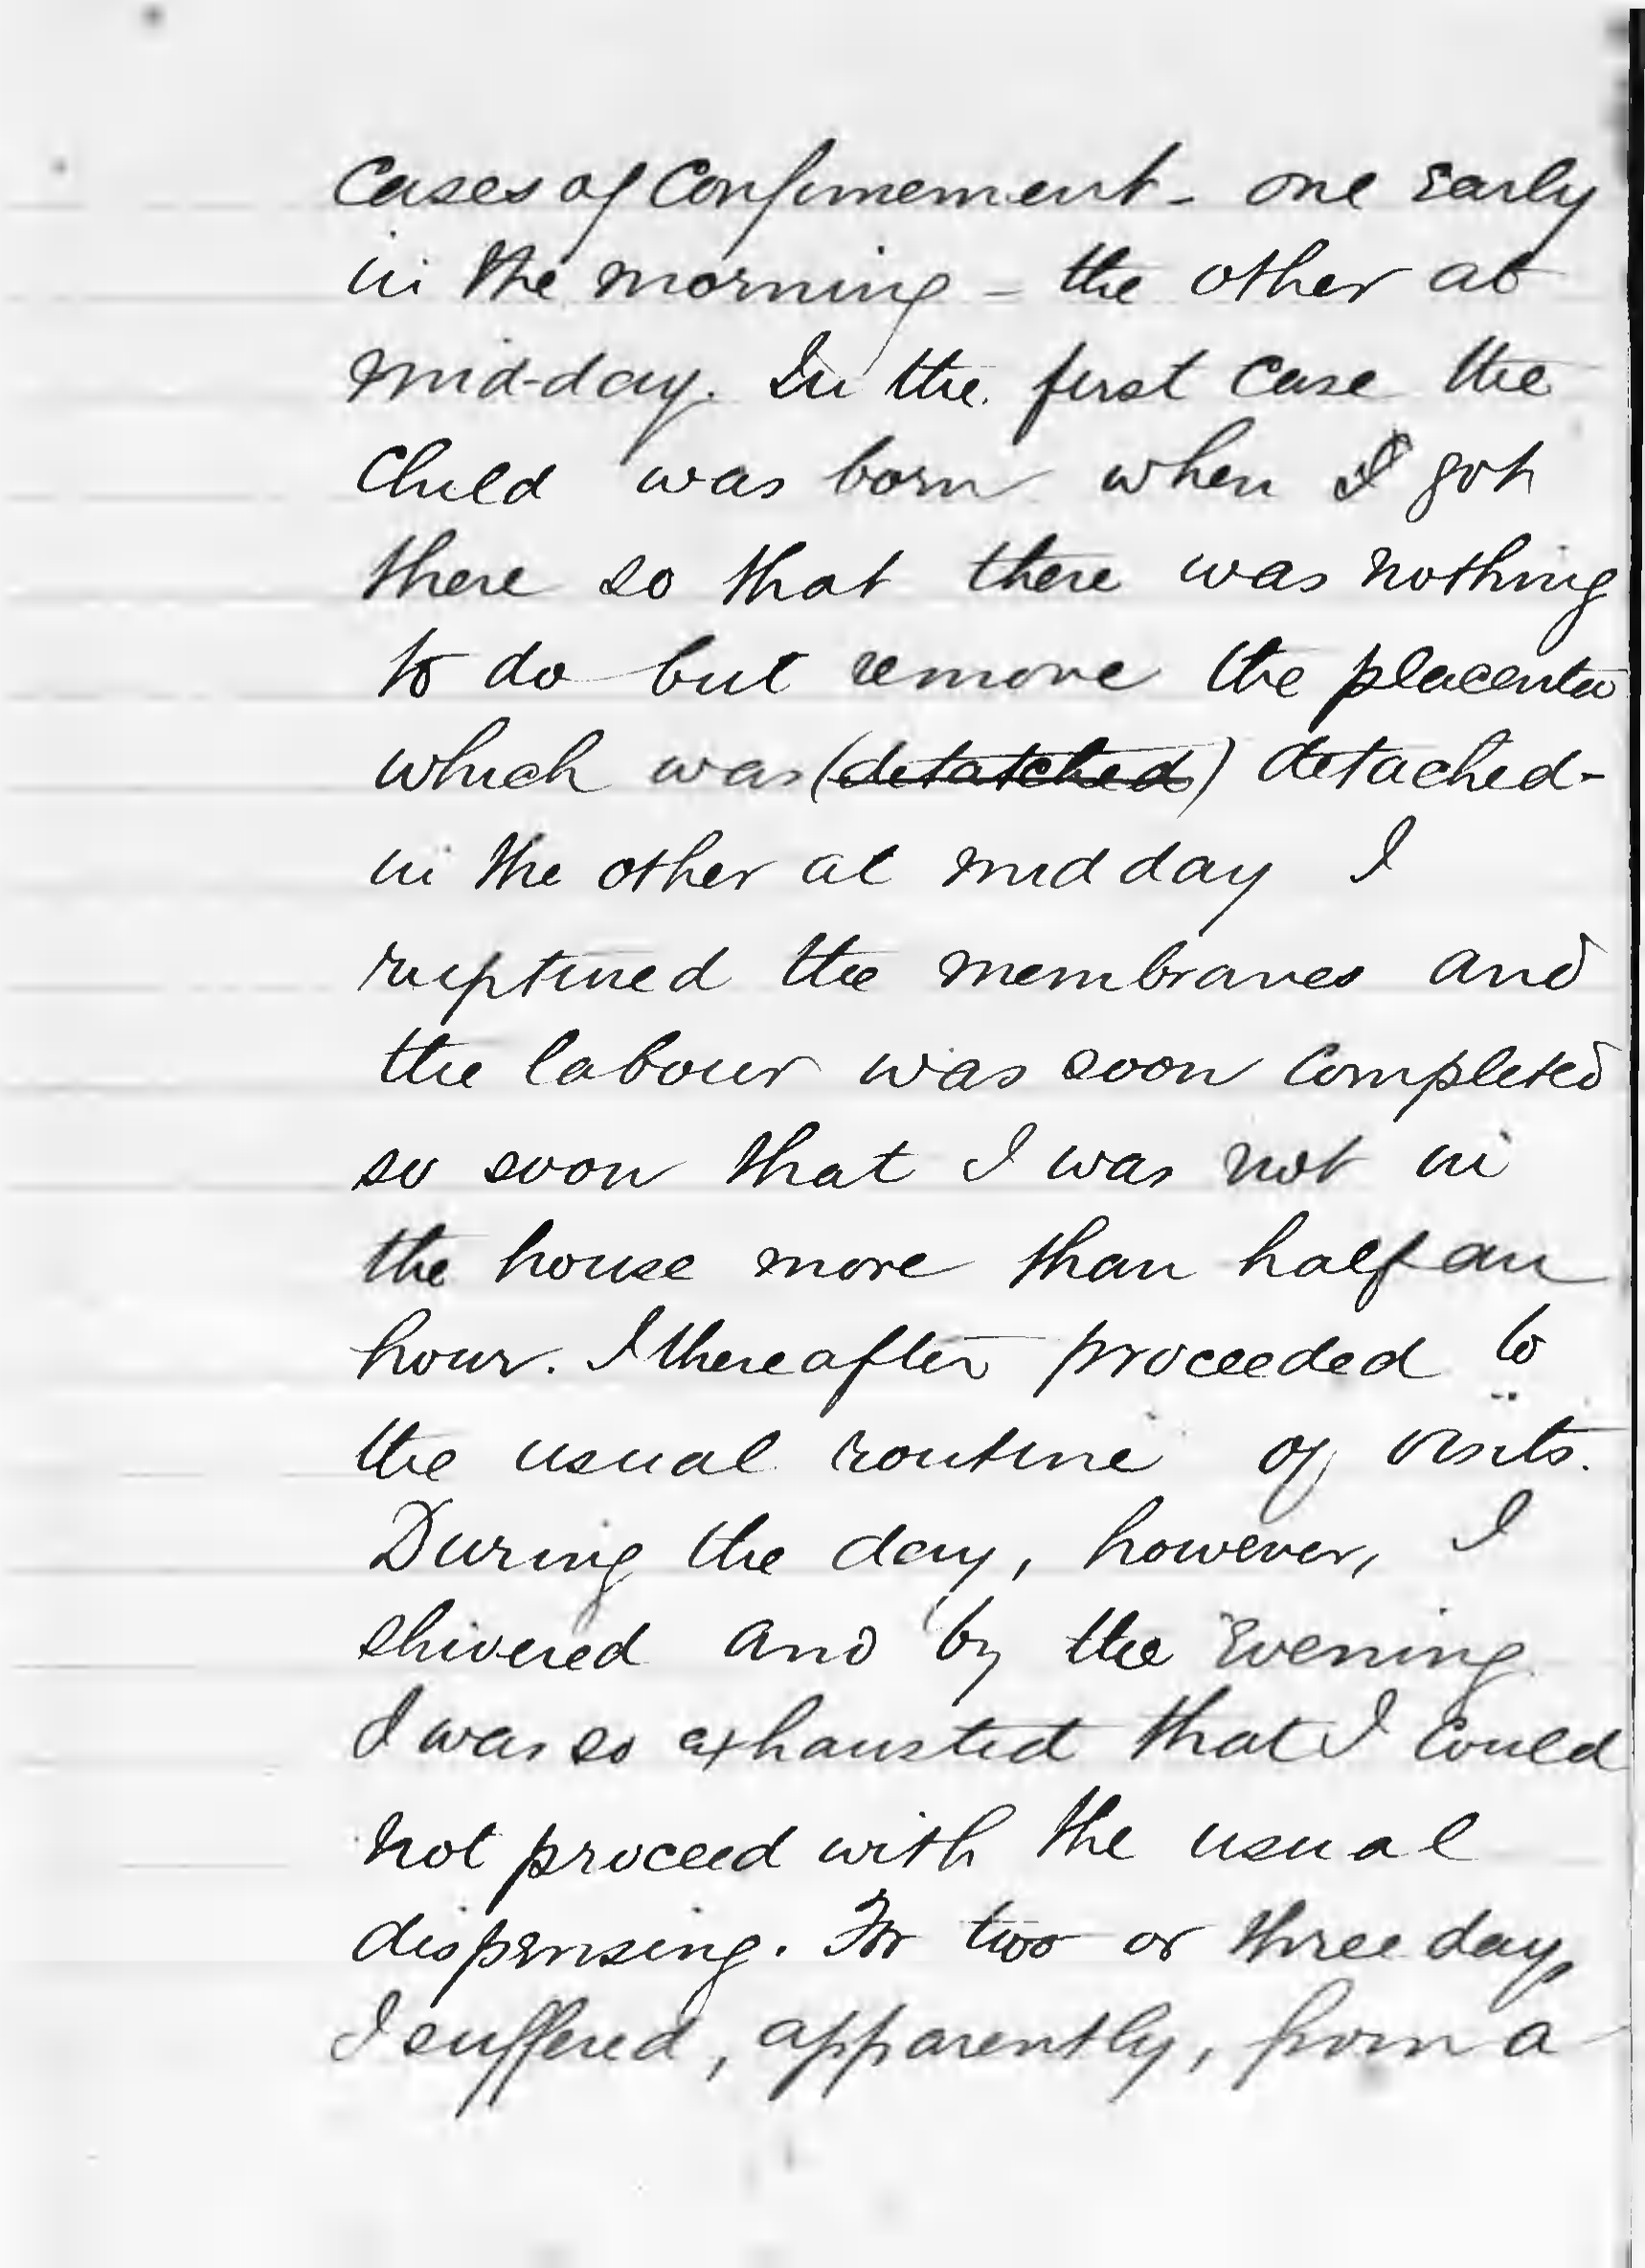 Cases of Confinement - one Early
in the morning - the other at
mid-day. In the first Case the
Child was born when I got
there so that there was nothing
to do but remove the placenta
which was (detatched) detached-
in the other at mid day I
ruptured the membranes and
the labour was soon Completed
so soon that I was not in
the house more than half an
hour. I thereafter proceeded to
the usual routine of visits.
During the day, however, I
shivered and by the Evening
I was so exhausted that I Could
not proceed with the usual
dispensing. For two or three days
I suffered, apparently, from a